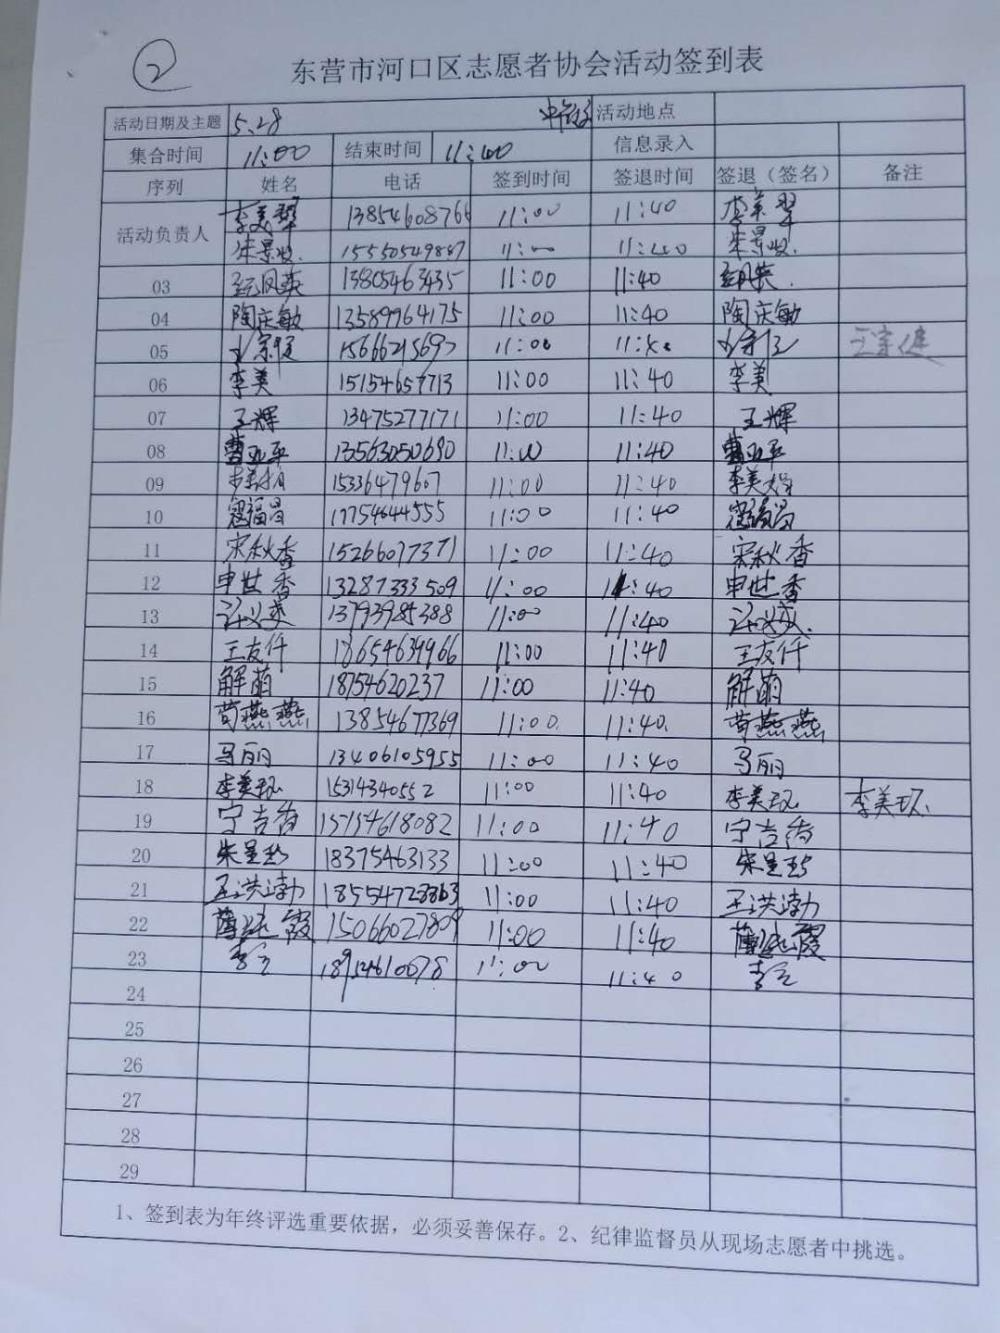 2
东营市河口区志愿者协会活动签到表
活动日期及主题 5.28 活动地点
集合时间 11:00 结束时间 11:40 信息录入
序列 姓名 电话 签到时间 签退时间 签退（签名） 备注
活动负责人 李美翠 13854608766 11:00 11:40 李美翠
朱景收 15550549887 11:00 11:40 朱景收
03 13805463435 11:00 11:40
04 陶庆敏 13589964175 11:00 11:40 陶庆敏
05 王宗健 15666215697 11:00 11:40 王宗健 王宗健
06 李美 15154657713 11:00 11:40 李美
07 王辉 13475277171 11:00 11:40 王辉
08 曹亚平 13563050690 11:00 11:40 曹亚平
09 15336479607 11:00 11:40
10 寇福昌 17754644555 11:00 11:40 寇福昌
11 宋秋香 15266077371 11:00 11:40 宋秋香
12 申世香 13287333509 11:00 11:40 申世香
13 13793985388 11:00 11:40
14 王友仟 18654639966 11:00 11:40 王友仟
15 解萌 18754620237 11:00 11:40 解萌
16 苟燕燕 13854677369 11:00 11:40 苟燕燕
17 马丽 13406105955 11:00 11:40 马丽
18 李美环 15314340552 11:00 11:40 李美环 李美环
19 宁吉香 15754618082 11:00 11:40 宁吉香
20 18375463133 11:00 11:40
21 王洪渤 18554728863 11:00 11:40 王洪渤
22 15066027809 11:00 11:40
23 18954610078 11:00 11:40
24
25
26
27
28
29
1、签到表为年终评选重要依据，必须妥善保存。2、纪律监督员从现场志愿者中挑选。